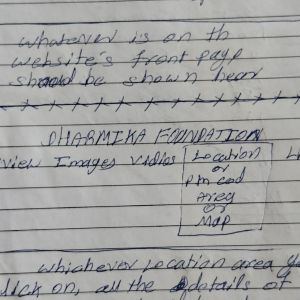 whatever is on th
website's front page
should be shown hear
DHARMIKA FOUNDATION
view Images vidios
Location
or
Pin cod
Area
or
Map
whichever Location area
click on, all the details of